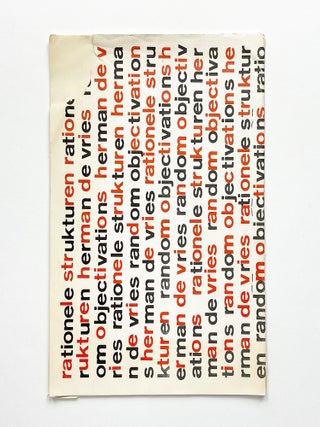 rationele strukturen ratione
rukturen herman de vries
om objectivations herman de v
ries rationele strukturen herma
n de vries random objectivation
s herman de vries rationele stru
kturen random objectivations h
erman de vries random objectiv
ations rationele strukturen her
man de vries random objectiva
tions random objectivations he
rman de vries rationele struktur
en random objectivations ratio